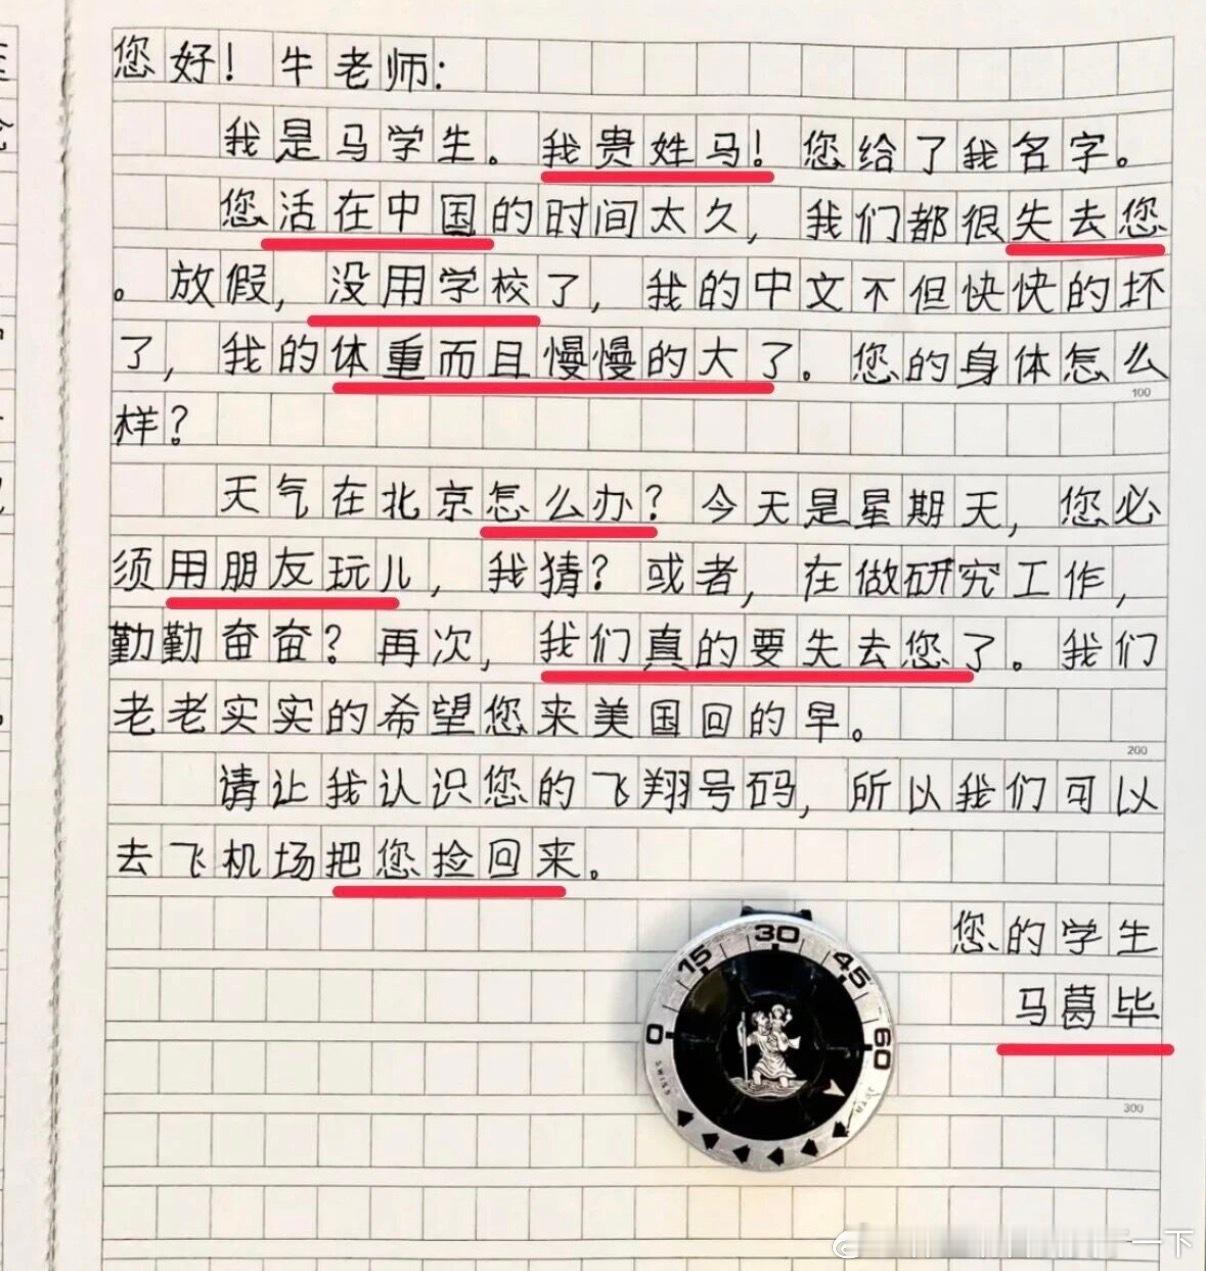 您好！牛老师：
我是马学生。我贵姓马！您给了我名字。
您活在中国的时间太久，我们都很失去您
。放假，没用学校了，我的中文不但快快的坏
了，我的体重而且慢慢的大了。您的身体怎么
100
样？
天气在北京怎么办？今天是星期天，您必
须用朋友玩儿，我猜？或者，在做研究工作，
勤勤奋奋？再次，我们真的要失去您了。我们
老老实实的希望您来美国回的早。
200
请让我认识您的飞翔号码，所以我们可以
去飞机场把您捡回来。
您的学生
马葛毕
300
0 15 30 45 60
SWISS
一下